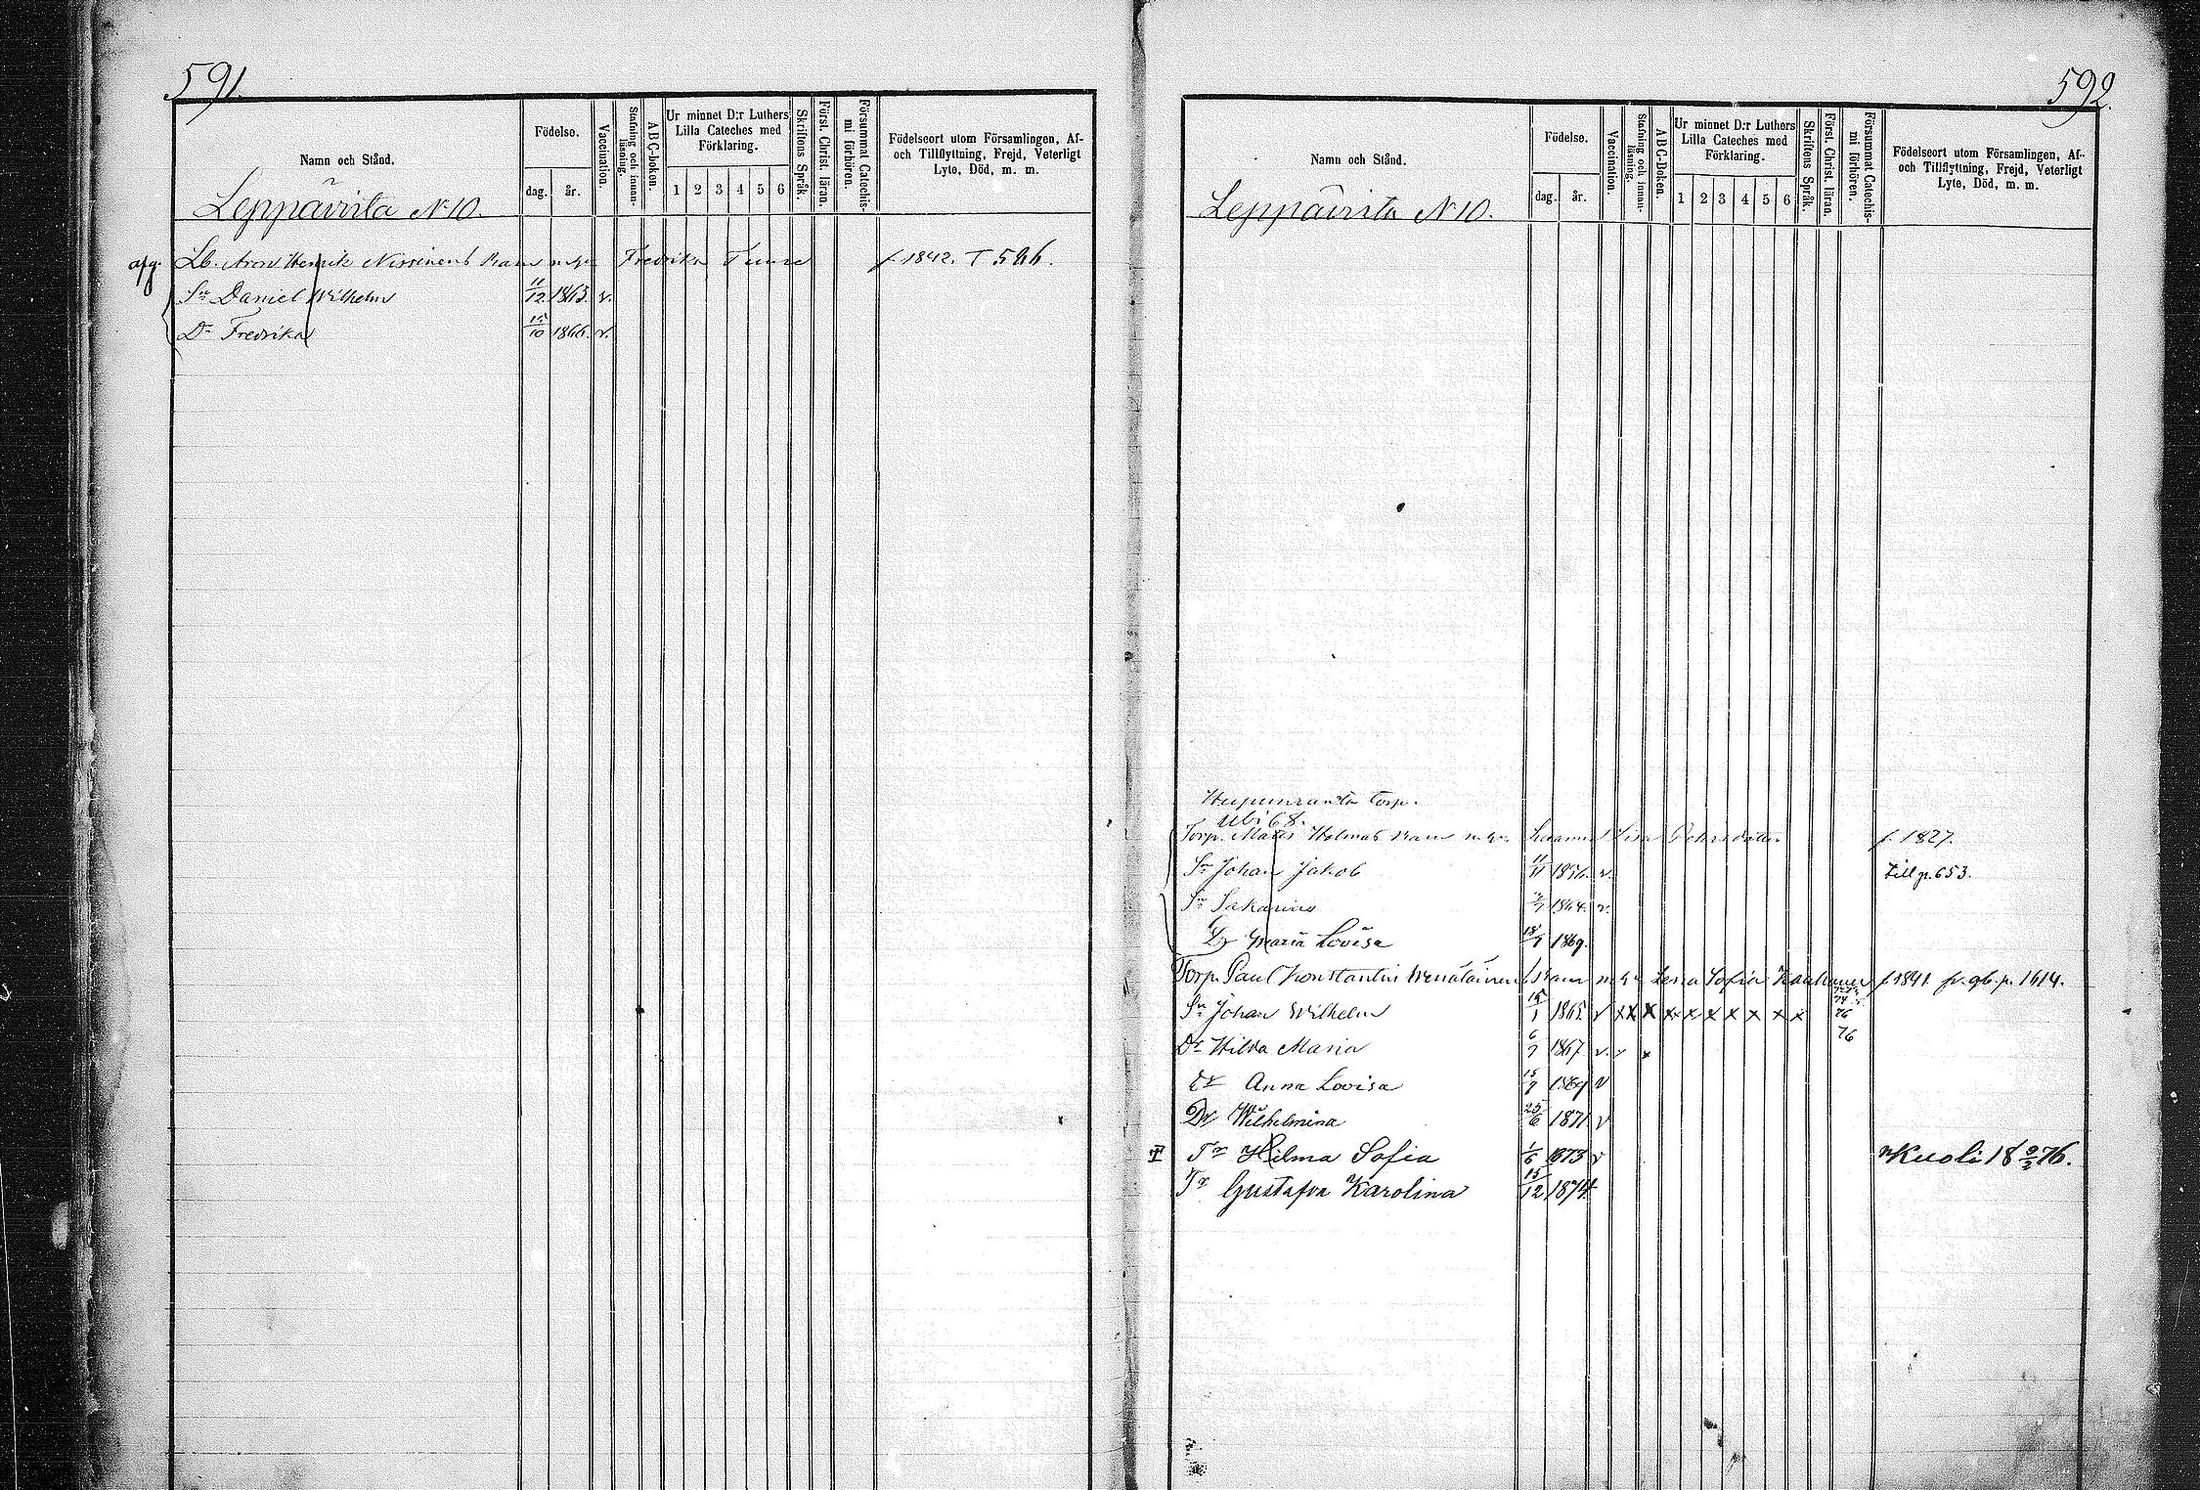 591.
Namn och Stånd.
Födelse.
dag.
år.
Vaccination.
Stafning och innan-läsning.
A B C-boken.
Ur minnet D:r Luthers Lilla Cateches med Förklaring.
1 2 3 4 5 6
Skriftens Språk.
Först. Christ. läran.
Försummat Catechis-mi förhören.
Födelseort utom Församlingen, Af- och Tillflyttning, Frejd, Veterligt Lyte, Död, m. m.
Leppävirta N 10.
afg. Lb. Aron Henrik Nissinens Fredrika f. 1842. T 586.
Sn Daniel Wilhelm 11/12 1863. v.
Dr Fredrika 15/10 1866. v.
592.
Namn och Stånd.
Födelse.
dag.
år.
Vaccination.
Stafning och innan-läsning.
A B C-Boken.
Ur minnet D:r Luthers Lilla Cateches med Förklaring.
1 2 3 4 5 6
Skriftens Språk.
Först. Christ. läran.
Försummat Catechis-mi förhören.
Födelseort utom Församlingen, Af- och Tillflyttning, Frejd, Veterligt Lyte, Död, m. m.
Leppävirta N 10.
torp.
Ubi 68.
Torp. Mats Holmas Lisa Petersdotter f. 1827.
Sn Johan Jakob 11/11 1856. v. Till p. 653.
Sn Sakarius 1864. v.
Dr Maria Lovisa 1869.
Torp. Paul Konstantin Lena Sofia f 1841 fr. gb. p. 1614.
Sn Johan Wilhelm 15/1 1865. v x x x x x x x x x x 76
Dr Hilda Maria 6/9 1867 v. 76
Dr Anna Lovisa 15/9 1869 v
Dr Wilhelmina 25/6 1871 v
Tr Hilma Sofia 1/5 1873 v Kuoli 18 9/3 76.
Tr Gustafva Karolina 15/12 1874